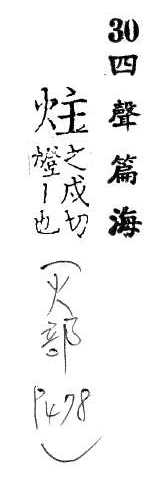 30四聲篇海
炷之戍切
燈丨也
(火部
P478)